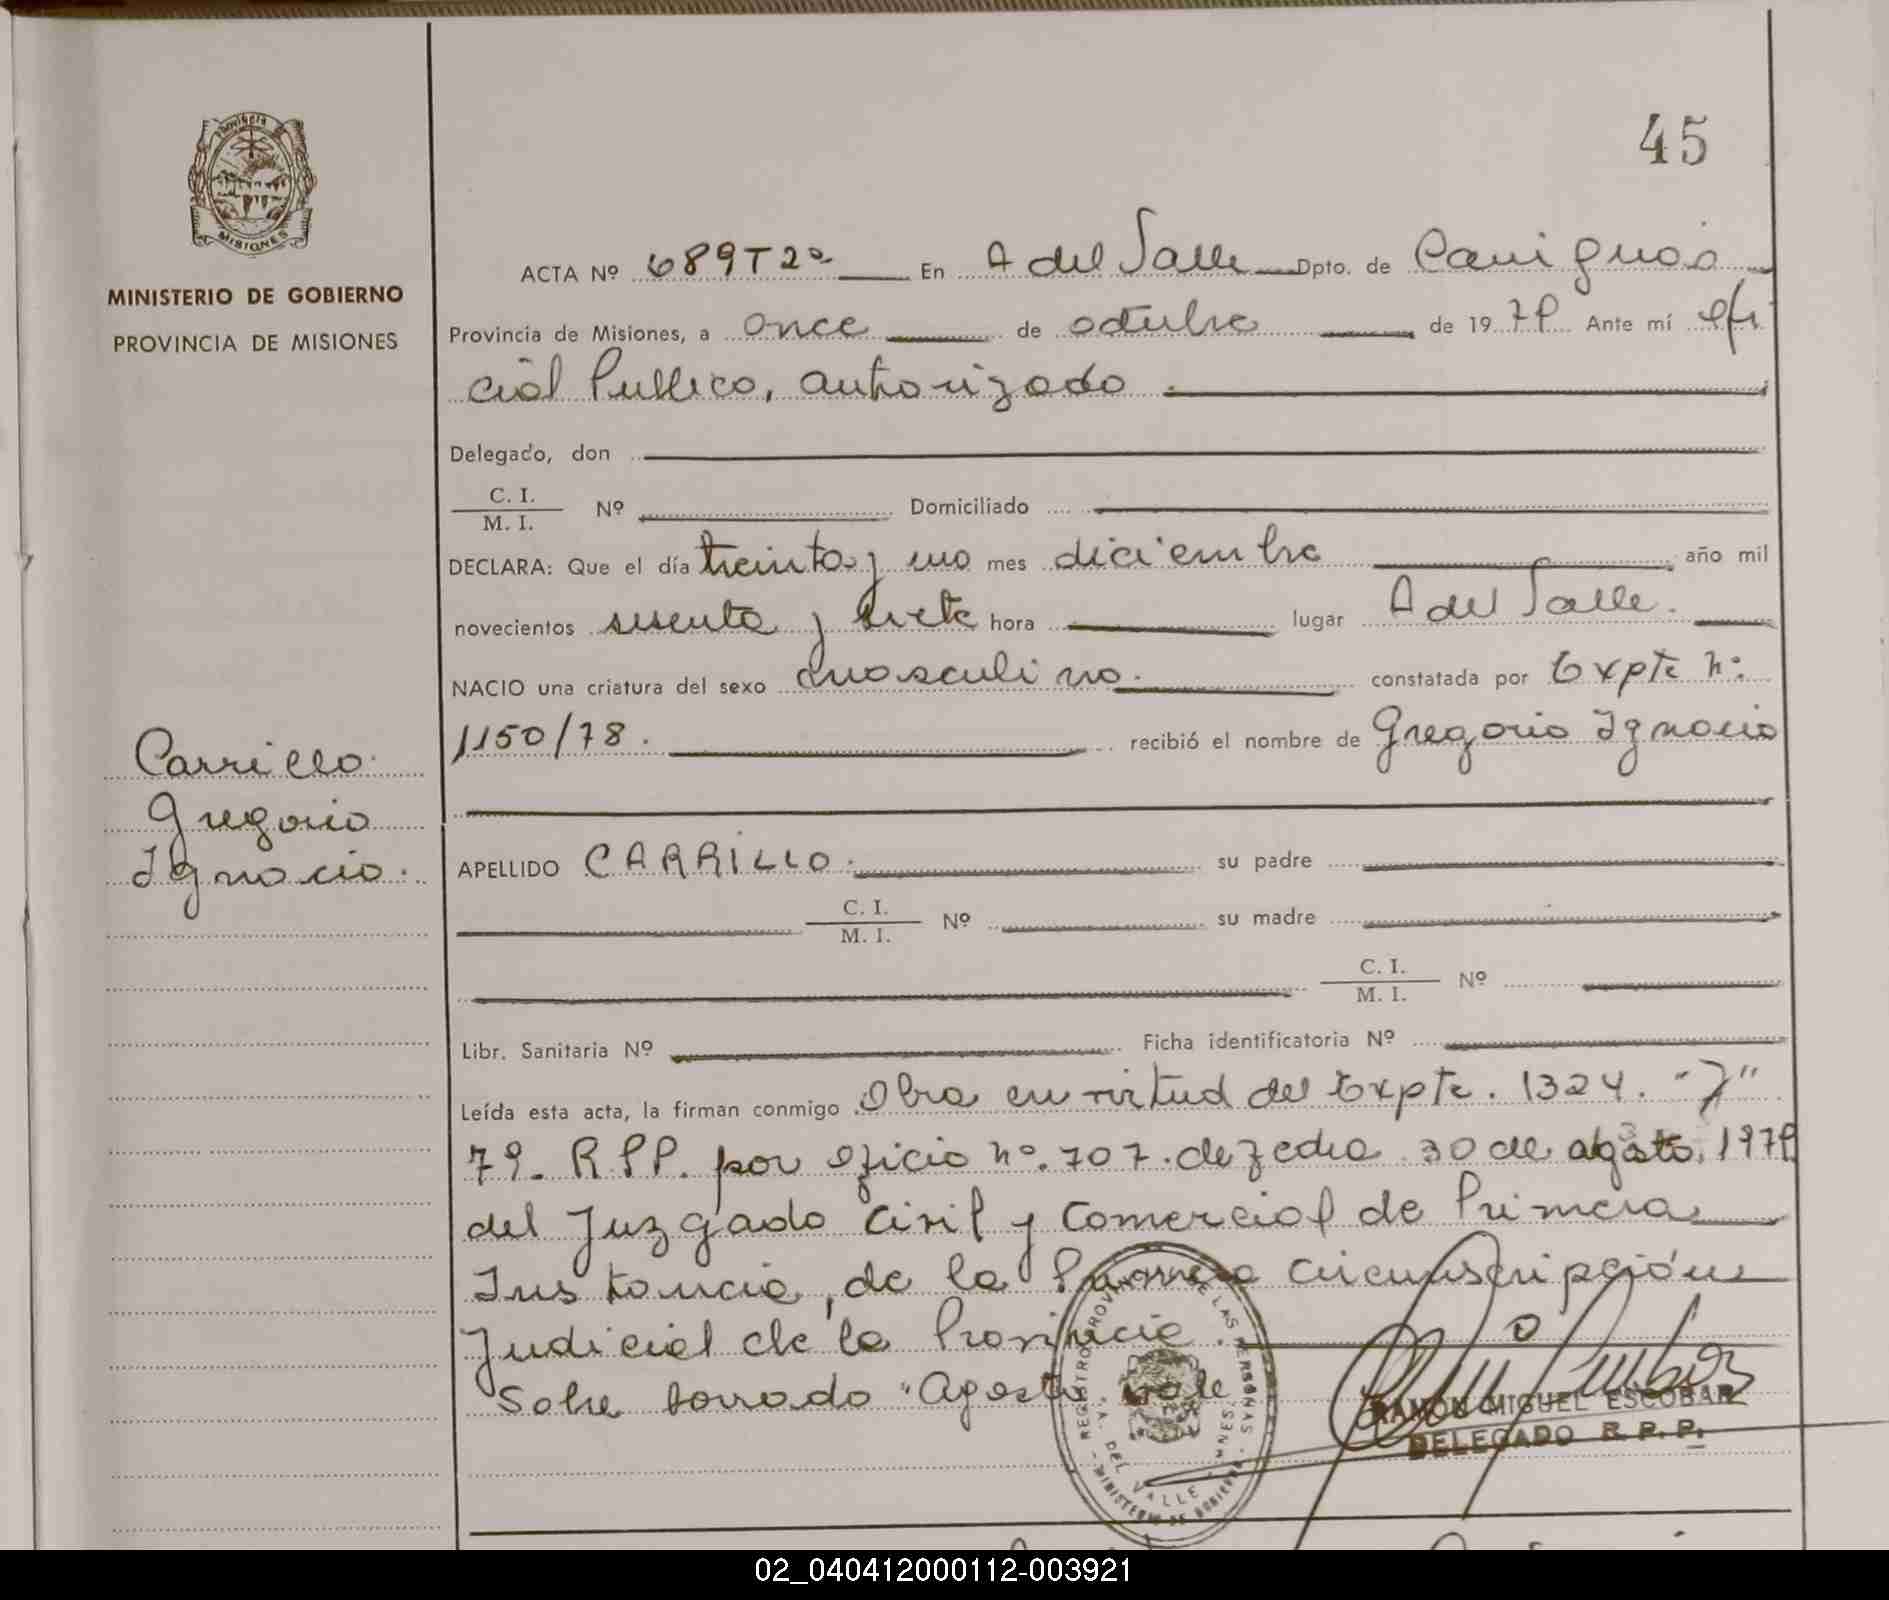 45
Provincia de
MISIONES
MINISTERIO DE GOBIERNO
PROVINCIA DE MISIONES
ACTA Nº 689 T 2º En A del Valle Dpto. de Cainguás
Provincia de Misiones, a once de octubre de 1979 Ante mí Ofi
cial Publico, autorizado
Delegado, don
C. I.
M. I. Nº Domiciliado
DECLARA: Que el día treinta y uno mes diciembre año mil
novecientos sesenta y siete hora lugar A del Valle.
NACIO una criatura del sexo masculino. constatada por Expte nº
1150/78. recibió el nombre de Gregorio Ignacio
Carrillo
Gregorio
Ignacio.
APELLIDO CARRILLO. su padre
C. I.
M. I. Nº su madre
C. I.
M. I. Nº
Libr. Sanitaria Nº Ficha identificatoria Nº
Leída esta acta, la firman conmigo Obra en virtud del Expte. 1324.
79- R.P.P. por oficio nº. 707. de fecha 30 de agosto, 1979
del Juzgado Civil y Comercial de Primera
Instancia, de la Primera circunscripción
Judicial de la Provincia.
Sobre borrado "Agosto vale
REGISTRO PROVINCIAL DE LAS PERSONAS
A. DEL VALLE MNES.
MINISTERIO DE GOBIERNO
RAMON MIGUEL ESCOBAR
DELEGADO R. P. P.
02_040412000112-003921